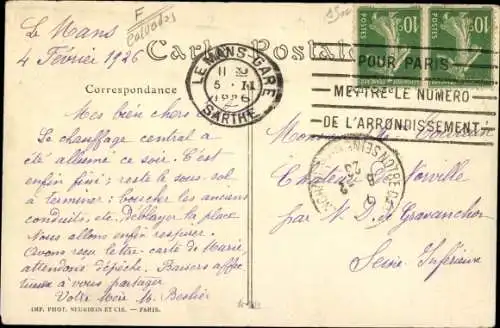 Le Mans
4 Février 1926
F
Calvados
Carte Postale
LE MANS-GARE
11
5 - II
1926
SARTHE
10c
10c
POUR PARIS
METTRE LE NUMERO
DE L'ARRONDISSEMENT
Correspondance
Mes bien chers
Le chauffage central a
été allumé ce soir. C'est
enfin fini; reste le sous-sol
à terminer: boucher les anciens
conduits, etc. Déblayer la place
Nous allons enfin respirer.
Avons reçu lettre-carte de Marie
attendons dépêche. Baisers affec
tueux à vous partager
Votre M. Beslier
Château de
par N. D. de Gravenchon
Seine Inférieure
IMP. PHOT. NEURDEIN ET CIE. — PARIS.